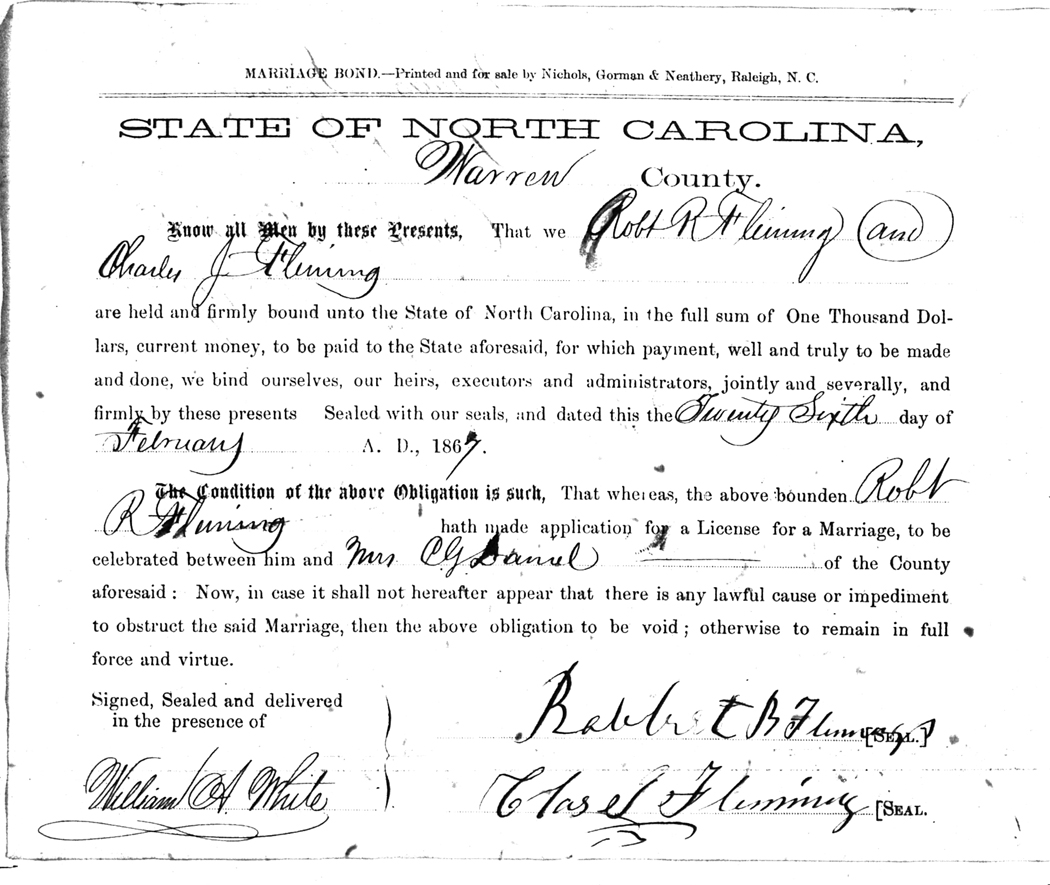 MARRIAGE BOND.—Printed and for sale by Nichols, Gorman & Neathery, Raleigh, N. C.
STATE OF NORTH CAROLINA,
Warren County.
Know all Men by these Presents, That we Robt R Fleming and
Charles J Fleming
are held and firmly bound unto the State of North Carolina, in the full sum of One Thousand Dol-
lars, current money, to be paid to the State aforesaid, for which payment, well and truly to be made
and done, we bind ourselves, our heirs, executors and administrators, jointly and severally, and
firmly by these presents Sealed with our seals, and dated this the Twenty Sixth day of
February A. D., 1867.
The Condition of the above Obligation is such, That whereas, the above bounden Robt
R Fleming hath made application for a License for a Marriage, to be
celebrated between him and Mrs C G Daniel of the County
aforesaid : Now, in case it shall not hereafter appear that there is any lawful cause or impediment
to obstruct the said Marriage, then the above obligation to be void ; otherwise to remain in full
force and virtue.
Signed, Sealed and delivered
in the presence of
Fleming [SEAL.]
William A. White
Chas J Fleming [SEAL.